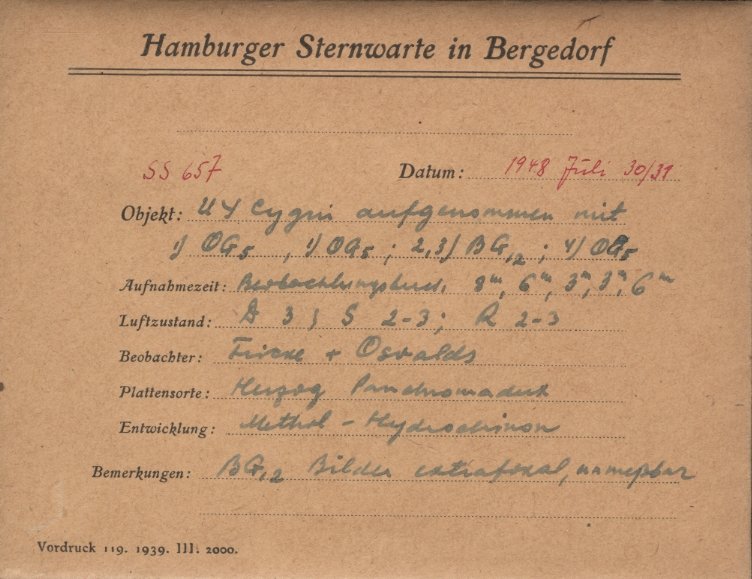 Hamburger Sternwarte in Bergedorf
SS 657 Datum: 1948 Juli 30/31
Objekt: UY Cygni aufgenommen mit
1) OG5 , 1) OG5 ; 2,3) BG12 ; 4) OG5
Aufnahmezeit: Beobachtungsbuch 8m, 6m, 3m, 3m, 6m
Luftzustand: D 3 ; S 2-3; R 2-3
Beobachter: Fricke + Osvalds
Plattensorte: Herzog
Entwicklung: Methol - Hydrochinon
Bemerkungen: BG12 Bilder extrafokal, unmeßbar
Vordruck 119. 1939. III. 2000.